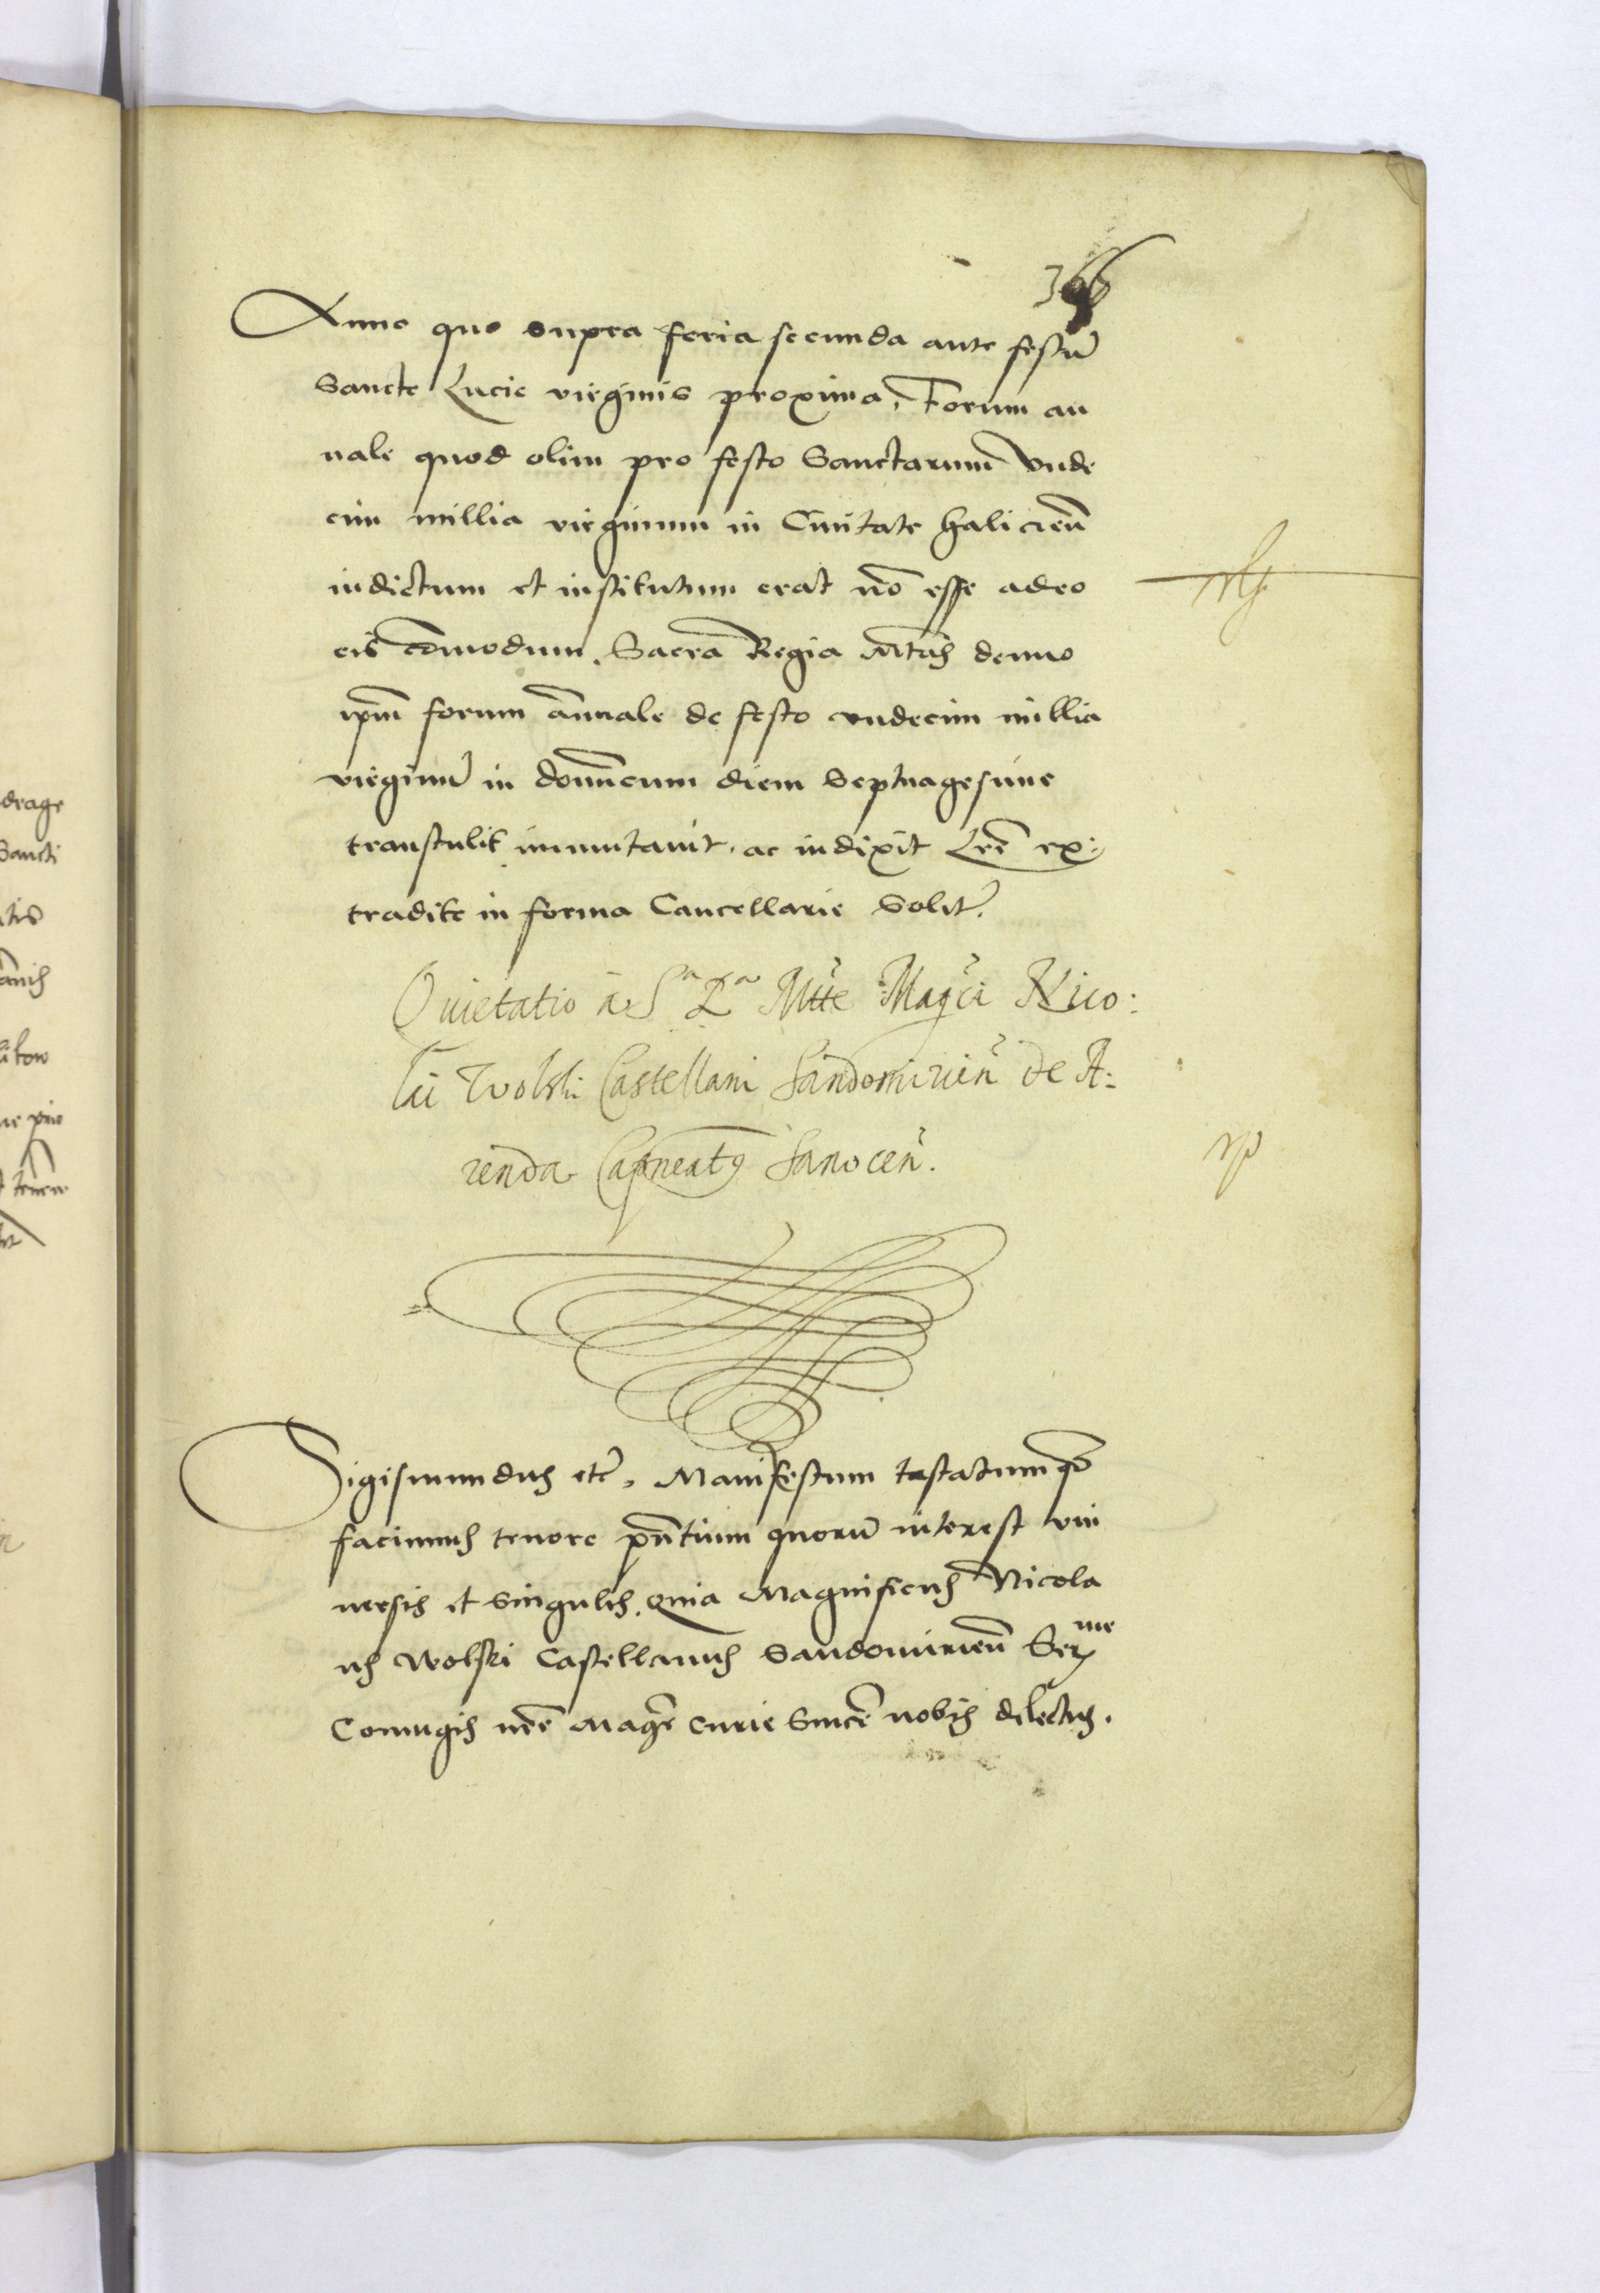 Anno quo supra feria secunda ante festū
Sancte Lucie virginis proxima, Forum an
nale quod olim pro festo Sanctarum Vnde
cim millia virginum in Civitate halicieñ
indictum et institutum erat nō esse adeo
eis cōmodum. Sacra Regia Mtas denuo
ipm̄ forum ānnale de festo vndecim millia
virginū in domīcum diem Septuagesime
transtulit immutavit. ac indixit Lrē ex:
tradite in forma Cancellarie Solit.
Quietatio a S^a R^a Mtte Magci Nico:
lai Wolski Castellani Sandomirien̄ de A:
renda Capneatus Sanocen̄.
Sigismundus etc̄. Manifestum testatumqȝ
facimus tenore pn̄tium quorū interest vni
versis et singulis. Quia Magnificus Nicola
us Wolski Castellanus Sandomirieñ Ser^me
Coniugis nrē Magr̄ curie Sincē nobis dilectus.